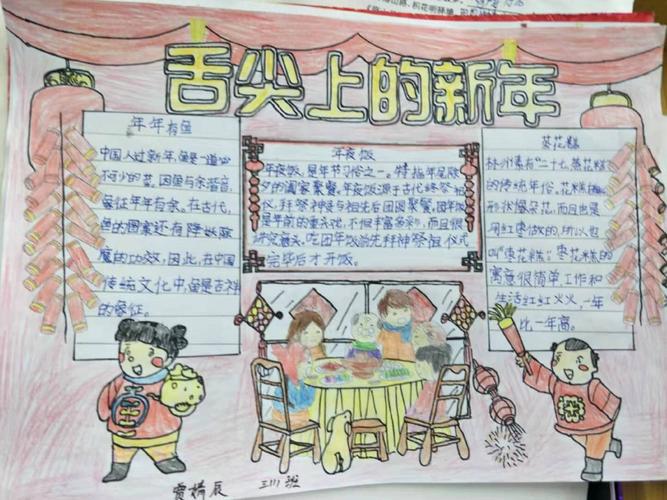 舌尖上的新年
年年有鱼
中国人过新年,鱼是一道必
不可少的菜。因鱼与余谐音,
象征年年有余。在古代,
鱼的图案还有降妖除
魔的功效,因此,在中国
传统文化中,鱼是吉祥
的象征。
年夜饭
年夜饭,是年节习俗之一。特指年尾除
夕的阖家聚餐。年夜饭源于古代年终祭祖
仪,拜祭神灵与祖先后团圆聚餐。团年饭
是年前的重头戏,不但丰富多彩,而且很
讲究意头。吃团年饭前先拜神祭祖,仪式
完毕后才开饭。
蒸花糕
林州素有"二十七,蒸花糕"
的传统年俗,花糕
形状像朵花,而且也是
用红枣做的,所以也
叫"枣花糕"。枣花糕的
寓意很简单,工作和
生活红红火火,一年
比一年高。
贾婧辰 三111班